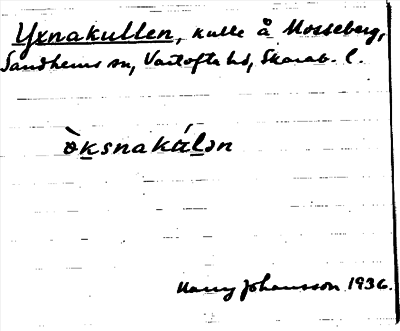 Yxnakullen, kulle å Mosseberg,
Sandhems sn, Vartofta hd, Skarab. l.
ò̱ksnakáḻən
Harry Johansson 1936.